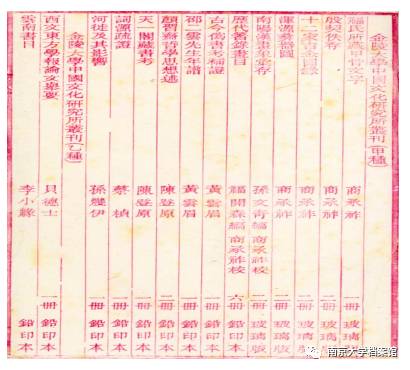 金陵大學中國文化研究所叢刊(甲種)
福氏所藏甲骨文字 商承祚 一冊 玻璃版
殷契佚存 商承祚 二冊 玻璃版
十二家吉金圖錄 商承祚 二冊 玻璃版
渾源彝器圖 商承祚 一冊 玻璃版
南陽漢畫象彙存 孫文青編 商承祚校 一冊 玻璃版
歷代著錄畫目 福開森編 商承祚校 六冊 鉛印本
古今偽書考補證 黃雲眉 一冊 鉛印本
邵二雲先生年譜 黃雲眉 一冊 鉛印本
顏習齋哲學思想述 陳登原 二冊 鉛印本
天一閣藏書考 陳登原 一冊 鉛印本
詞源疏證 蔡楨 一冊 鉛印本
河徙及其影響 孫幾伊 一冊 鉛印本
金陵大學中國文化研究所叢刊(乙種)
西文東方學報論文舉要 貝德士 一冊 鉛印本
雲南書目 李小緣 一冊 鉛印本
南京大学档案馆